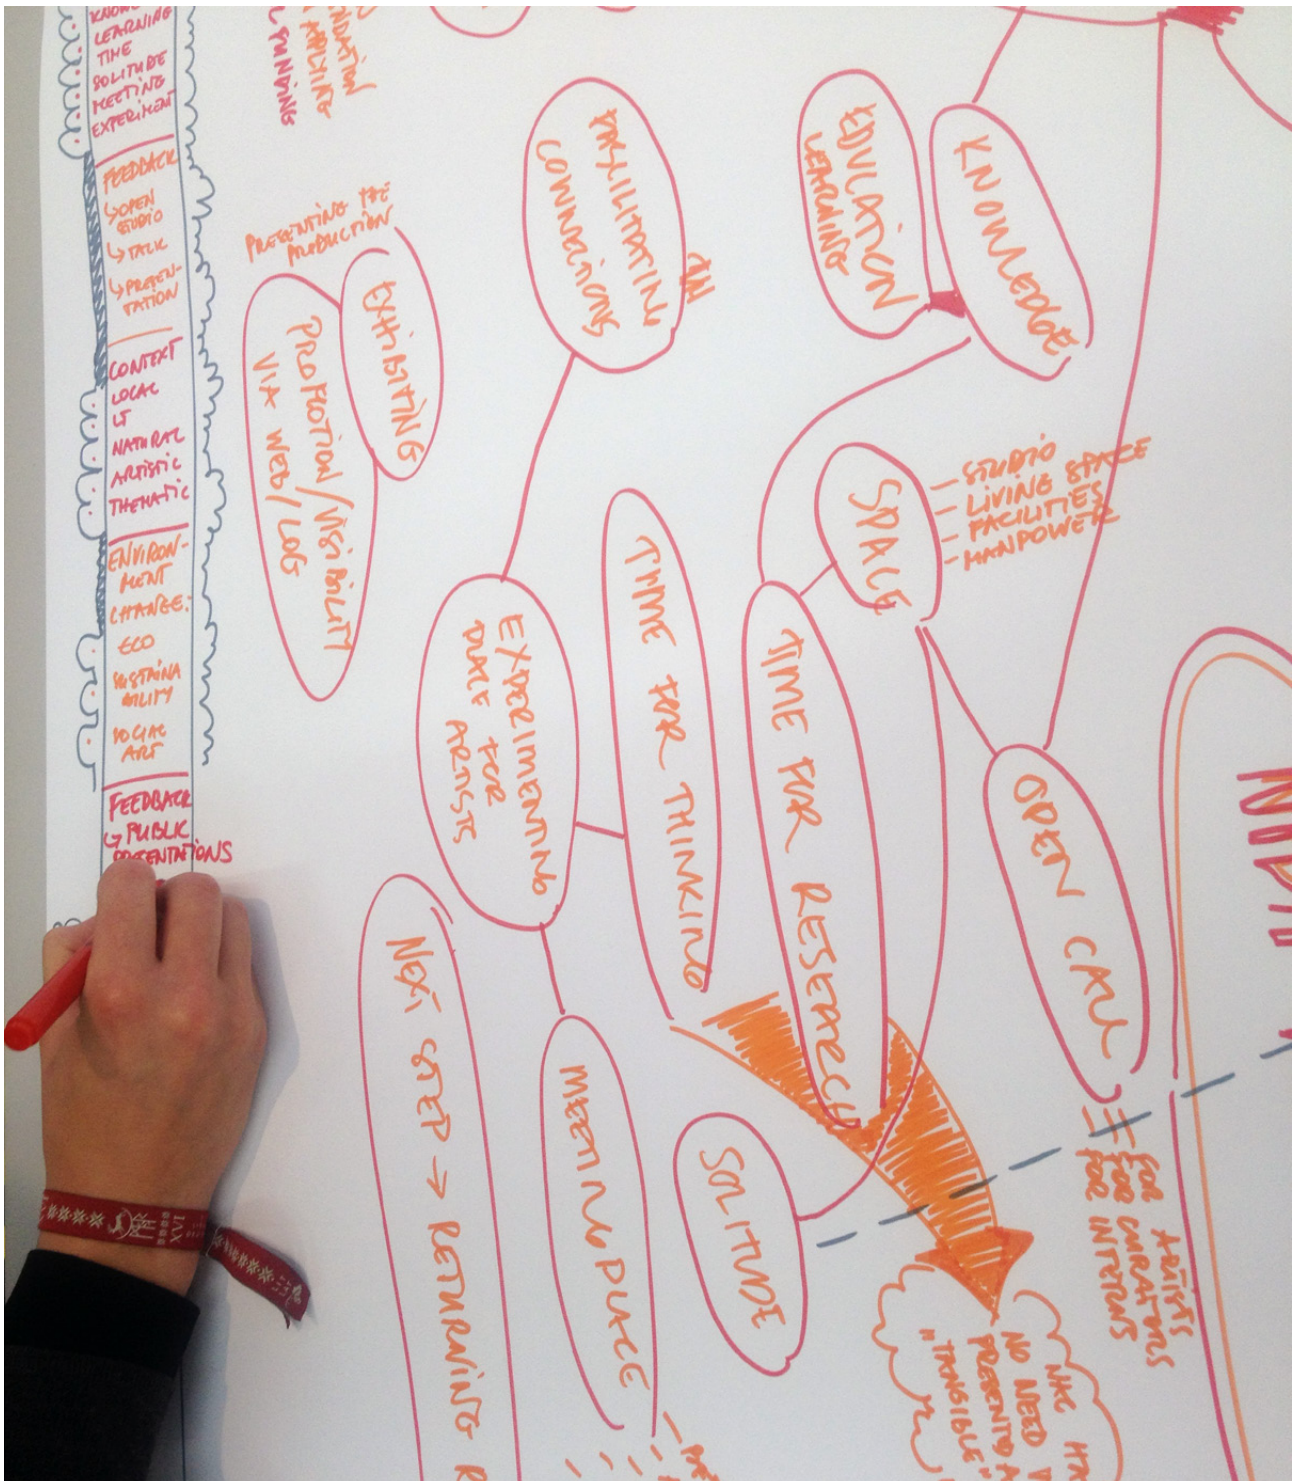 LEARNING
TIME
SOLITUDE
MEETING
EXPERIMENT
FEEDBACK
↳ OPEN
STUDIO
↳ TALK
↳ PRESEN-
TATION
CONTEXT
LOCAL
LT
NATURAL
ARTISTIC
THEMATIC
ENVIRON-
MENT
CHANGE:
ECO
SUSTAINA
BILITY
SOCIAL
ART
FEEDBACK
↳ PUBLIC
PRESENTATIONS
APPLYING
FUNDING
PRESENTING THE
PRODUCTION
EXHIBITING
PROMOTION/VISIBILITY
VIA WEB/LOG
FACILITATING
CONNECTIONS
EDUCATION
LEARNING
KNOWLEDGE
SPACE
- STUDIO
- LIVING SPACE
- FACILITIES
- MANPOWER
EXPERIMENTING
PLACE FOR
ARTISTS
TIME FOR THINKING
TIME FOR RESEARCH
OPEN CALL
= FOR ARTISTS
= FOR CURATORS
- FOR INTERNS
NEXT STEP → RETURNING R
MEETING PLACE
SOLITUDE
NO NEED
"TANGIBLE"